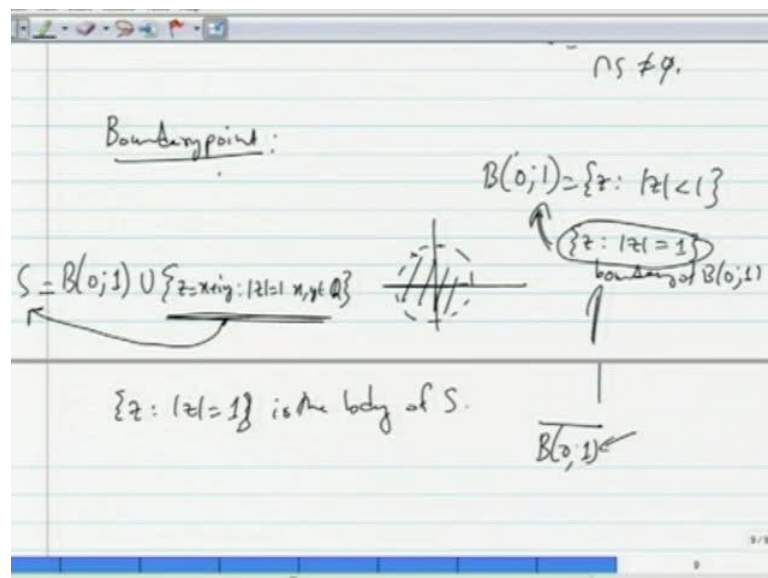 ∩S ≠ φ.
Boundary point :
B(0;1) = {z : |z| < 1}
{z : |z| = 1}
boundary of B(0;1)
S = B(0;1) ∪ {z=x+iy : |z|=1 x,y∈Q}
{z : |z| = 1} is the bdy of S.
B(0;1)
9